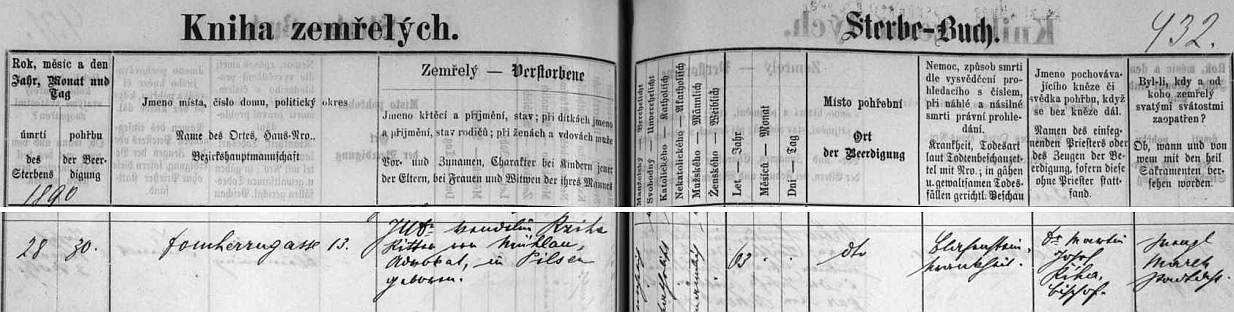 Kniha zemřelých.
Sterbe-Buch.
432.
Rok, měsíc a den
Jahr, Monat und
Tag
úmrtí
des
Sterbens
pohřbu
der Beer-
digung
1890
Jméno místa, číslo domu, politický okres
Name des Ortes, Haus-Nro.,
Bezirkshauptmannschaft
Zemřelý — Verstorbene
Jméno křtěcí a příjmění, stav; při dítkách jméno
a příjmění, stav rodičů; při ženách a vdovách muže
Vor- und Zunamen, Charakter bei Kindern jener
der Eltern, bei Frauen und Witwen der ihres Mannes
Manželský — Verehelicht
Svobodný — Unverehelicht
Katolického — Katholisch
Nekatolického — Akatholisch
Mužského — Männlich
Ženského — Weiblich
Let — Jahr
Měsíců — Monat
Dní — Tag
Místo pohřební
Ort
der Beerdigung
Nemoc, způsob smrti
dle vysvědčení pro-
hledacího s číslem,
při náhlé a násilné
smrti právní prohle-
dání.
Krankheit, Todesart
laut Todtenbeschauzet-
tel mit Nro.; in gähen
u. gewaltsamen Todes-
fällen gerichtl. Beschau
Jméno pochováva-
jícího kněze či
svědka pohřbu, když
se bez kněze dál.
Namen des einseg-
nenden Priesters oder
des Zeugen der Be-
erdigung, sofern diese
ohne Priester statt-
fand.
Byl-li, kdy a od
koho zemřelý
svatými svátostmi
zaopatřen?
Ob, wann und von
wem mit den heil
Sakramenten ver-
sehen worden.
28 30. Domherrngasse 13.
JUDr Wendelin Rziha
Ritter von Mühlau,
Advokat, in Pilsen
geboren.
63 . .
dto
Blasenstein-
krankheit.
Dr Martin
Josef
Říha,
Bischof.
Marek